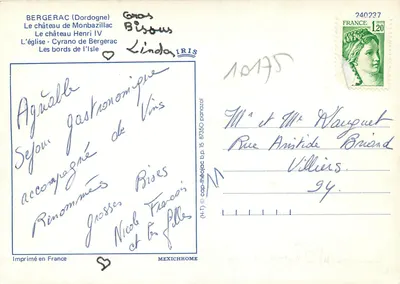 BERGERAC (Dordogne)
Le château de Monbazillac
Le château Henri IV
L'église - Cyrano de Bergerac
Les bords de l'Isle
Gros
Bisous
Linda
IRIS
Agréable
Sejour gastronomique
accompagné de Vins
Rinommés
grosses Bises
Nicole Francis
et les filles
Imprimé en France
MEXICHROME
(N-T) © cap-théojac b.p. 15 87350 panazol
240227
FRANCE
1,20
10175
Mr et Me Mauguet
Rue Aristide Briand
Villiers
94.